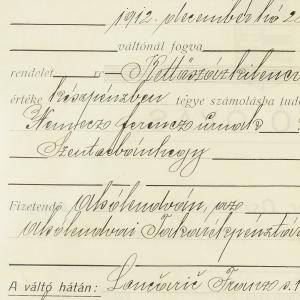 1912. december hó 28
váltónál fogva
rendelet re Kettőszázkilenc
értéke készpénzben tegye számolásba tud
Nemecz Ferencz úrnak
Szentadbánhegy
Fizetendő alsólendván, az
alsólendvai Takarékpénztár
A váltó hátán: Lončarič Franz s.